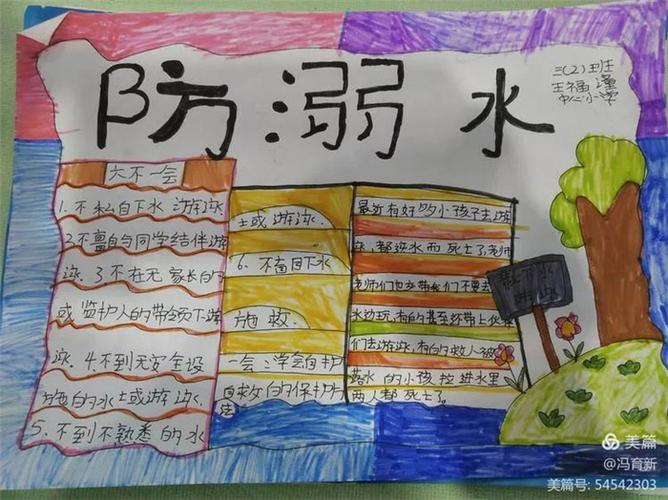 防溺水
三(2)班
王福瑾
中心小学
六不一会
1.不私自下水 游泳
2.不擅自与同学结伴游
泳.3不在无 家长的
或监护人的带领下游
泳.4.不到无安全设
施的水土或游泳.
5.不到不熟悉的水
土或游泳.
6.不下水
施救.
一会:学会自护
自救的保护方
法
最近有好的小孩子去游
泳,都进水而死亡了,老师
老师们也去带我们不要去
水边玩,有的甚至还带上伙
们去游泳,有的救人被
落水的小孩拉进水里
两人都死亡了。
美篇
@冯育新
美篇号: 54542303